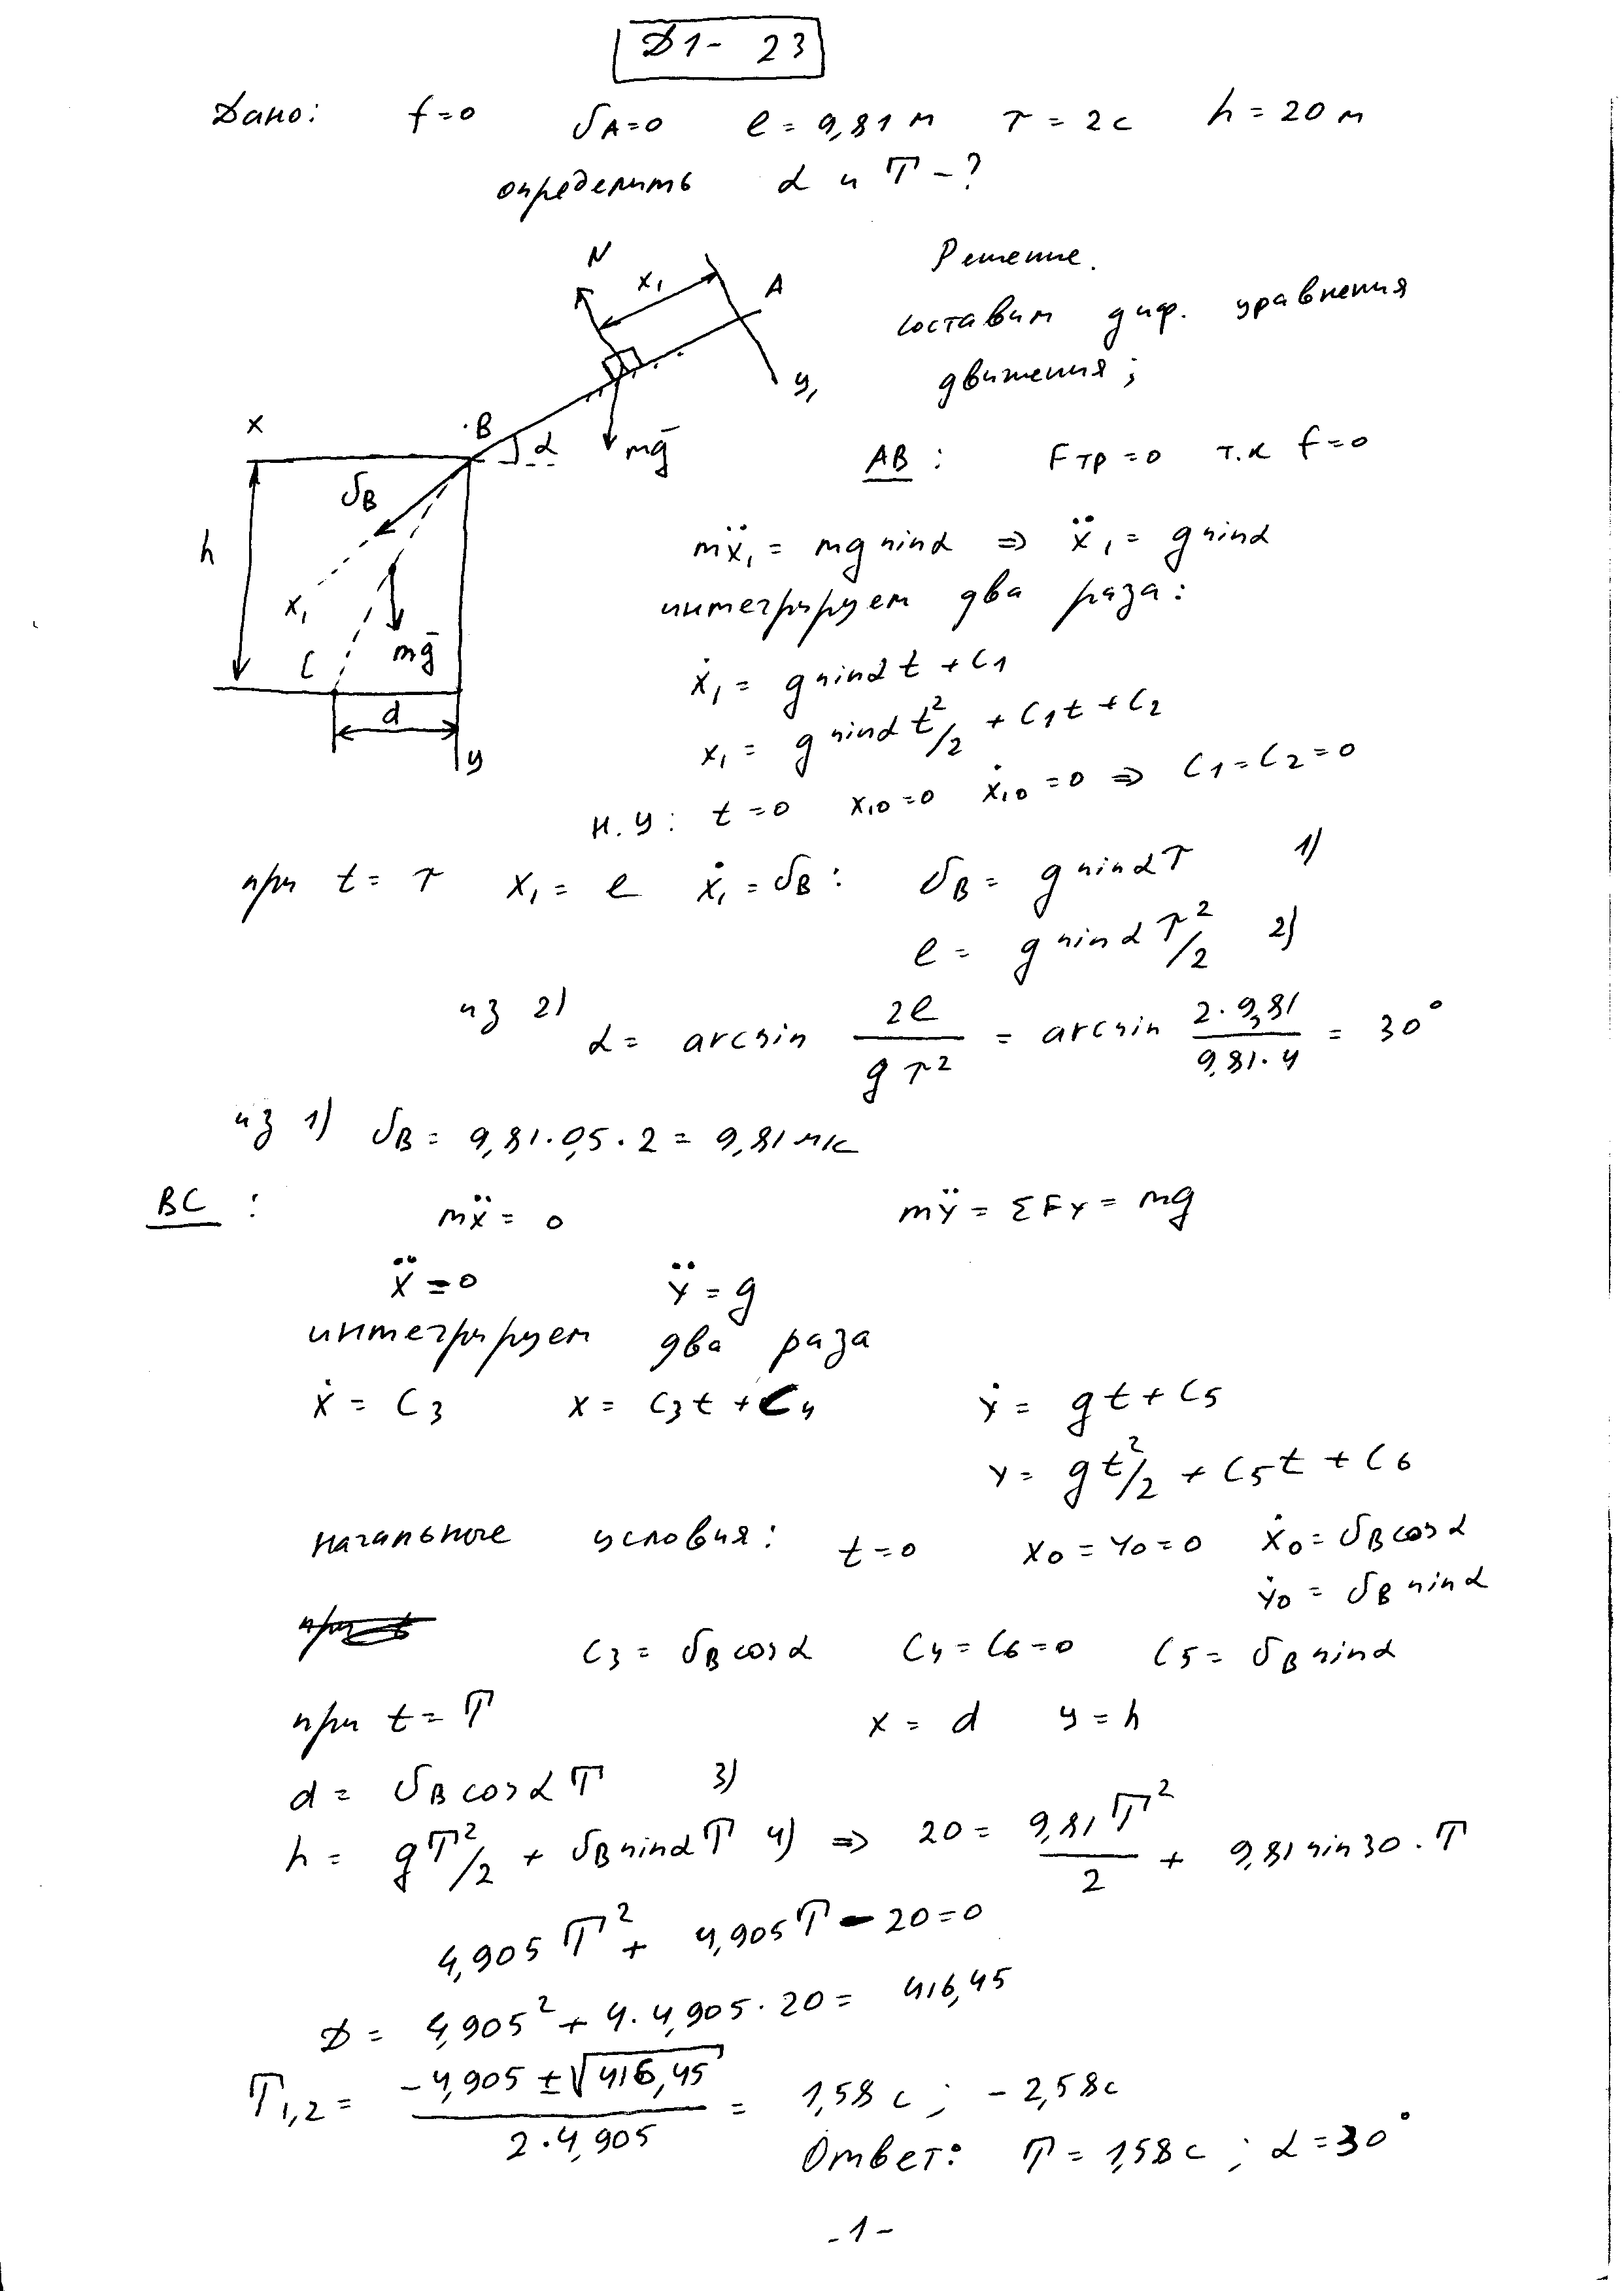 Д1- 23
Дано: f=0 υA=0 l = 9,81 м τ = 2с h = 20 м
определить α и T-?
Решение.
составим диф. уравнения
движения;
N
x₁
A
y₁
mḡ
x
B
α
υB
h
x₁
mḡ
C
d
y
AB : Fтр=0 т.к f=0
mẍ₁ = mg sinα ⇒ ẍ₁ = g sinα
интегрируем два раза:
ẋ₁ = g sinα t + C1
x₁ = g sinα t²/2 + C1t + C2
н.у: t=0 x₁₀=0 ẋ₁₀=0 ⇒ C1=C2=0
при t = τ x₁ = l ẋ₁ = υB : υB = g sinα τ 1)
l = g sinα τ²/2 2)
из 2) α = arcsin 2l/gτ² = arcsin 2·9,81/9,81·4 = 30°
из 1) υB = 9,81·0,5·2 = 9,81 м/с
BC : mẍ = 0 mÿ = ΣFy = mg
ẍ = 0 ÿ = g
интегрируем два раза
ẋ = C3 x = C3t + C4 ẏ = gt + C5
y = gt²/2 + C5t + C6
начальные условия: t=0 x0 = y0 = 0 ẋ0 = υB cosα
ẏ0 = υB sinα
C3 = υB cosα C4 = C6 = 0 C5 = υB sinα
при t = T x = d y = h
d = υB cosα T 3)
h = gT²/2 + υB sinα T 4) ⇒ 20 = 9,81T²/2 + 9,81 sin30·T
4,905 T² + 4,905T - 20=0
D = 4,905² + 4·4,905·20 = 416,45
T1,2 = -4,905 ± √416,45/2·4,905 = 1,58 с ; -2,58с
Ответ: T = 1,58 с ; α = 30°
-1-